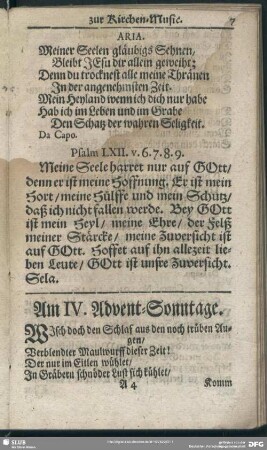 zur Kirchen-Music. 7
ARIA.
Meiner Seelen gläubigs Sehnen,
Bleibt JEsu dir allein geweiht:
Denn du trocknest alle meine Thränen
In der angenehmsten Zeit.
Mein Heyland wenn ich dich nur habe
Hab ich im Leben und im Grabe
Den Schatz der wahren Seligkeit.
Da Capo.
Psalm LXII. v. 6. 7. 8. 9.
Meine Seele harret nur auf GOtt/
denn er ist meine Hoffnung. Er ist mein
Hort/ meine Hülffe und mein Schutz/
daß ich nicht fallen werde. Bey GOtt
ist mein Heyl/ meine Ehre/ der Felß
meiner Stärcke/ meine Zuversicht ist
auf GOtt. Hoffet auf ihn allezeit lie-
ben Leute/ GOtt ist unsre Zuversicht.
Sela.
Am IV. Advent-Sonntage.
WIsch doch den Schlaf aus den noch trüben Au-
gen/
Verblendter Maulwurff dieser Zeit!
Der nur im Eitlen wühlet/
In Gräbern schnöder Lust sich kühlet/
A 4 Komm
SLUB
DFG